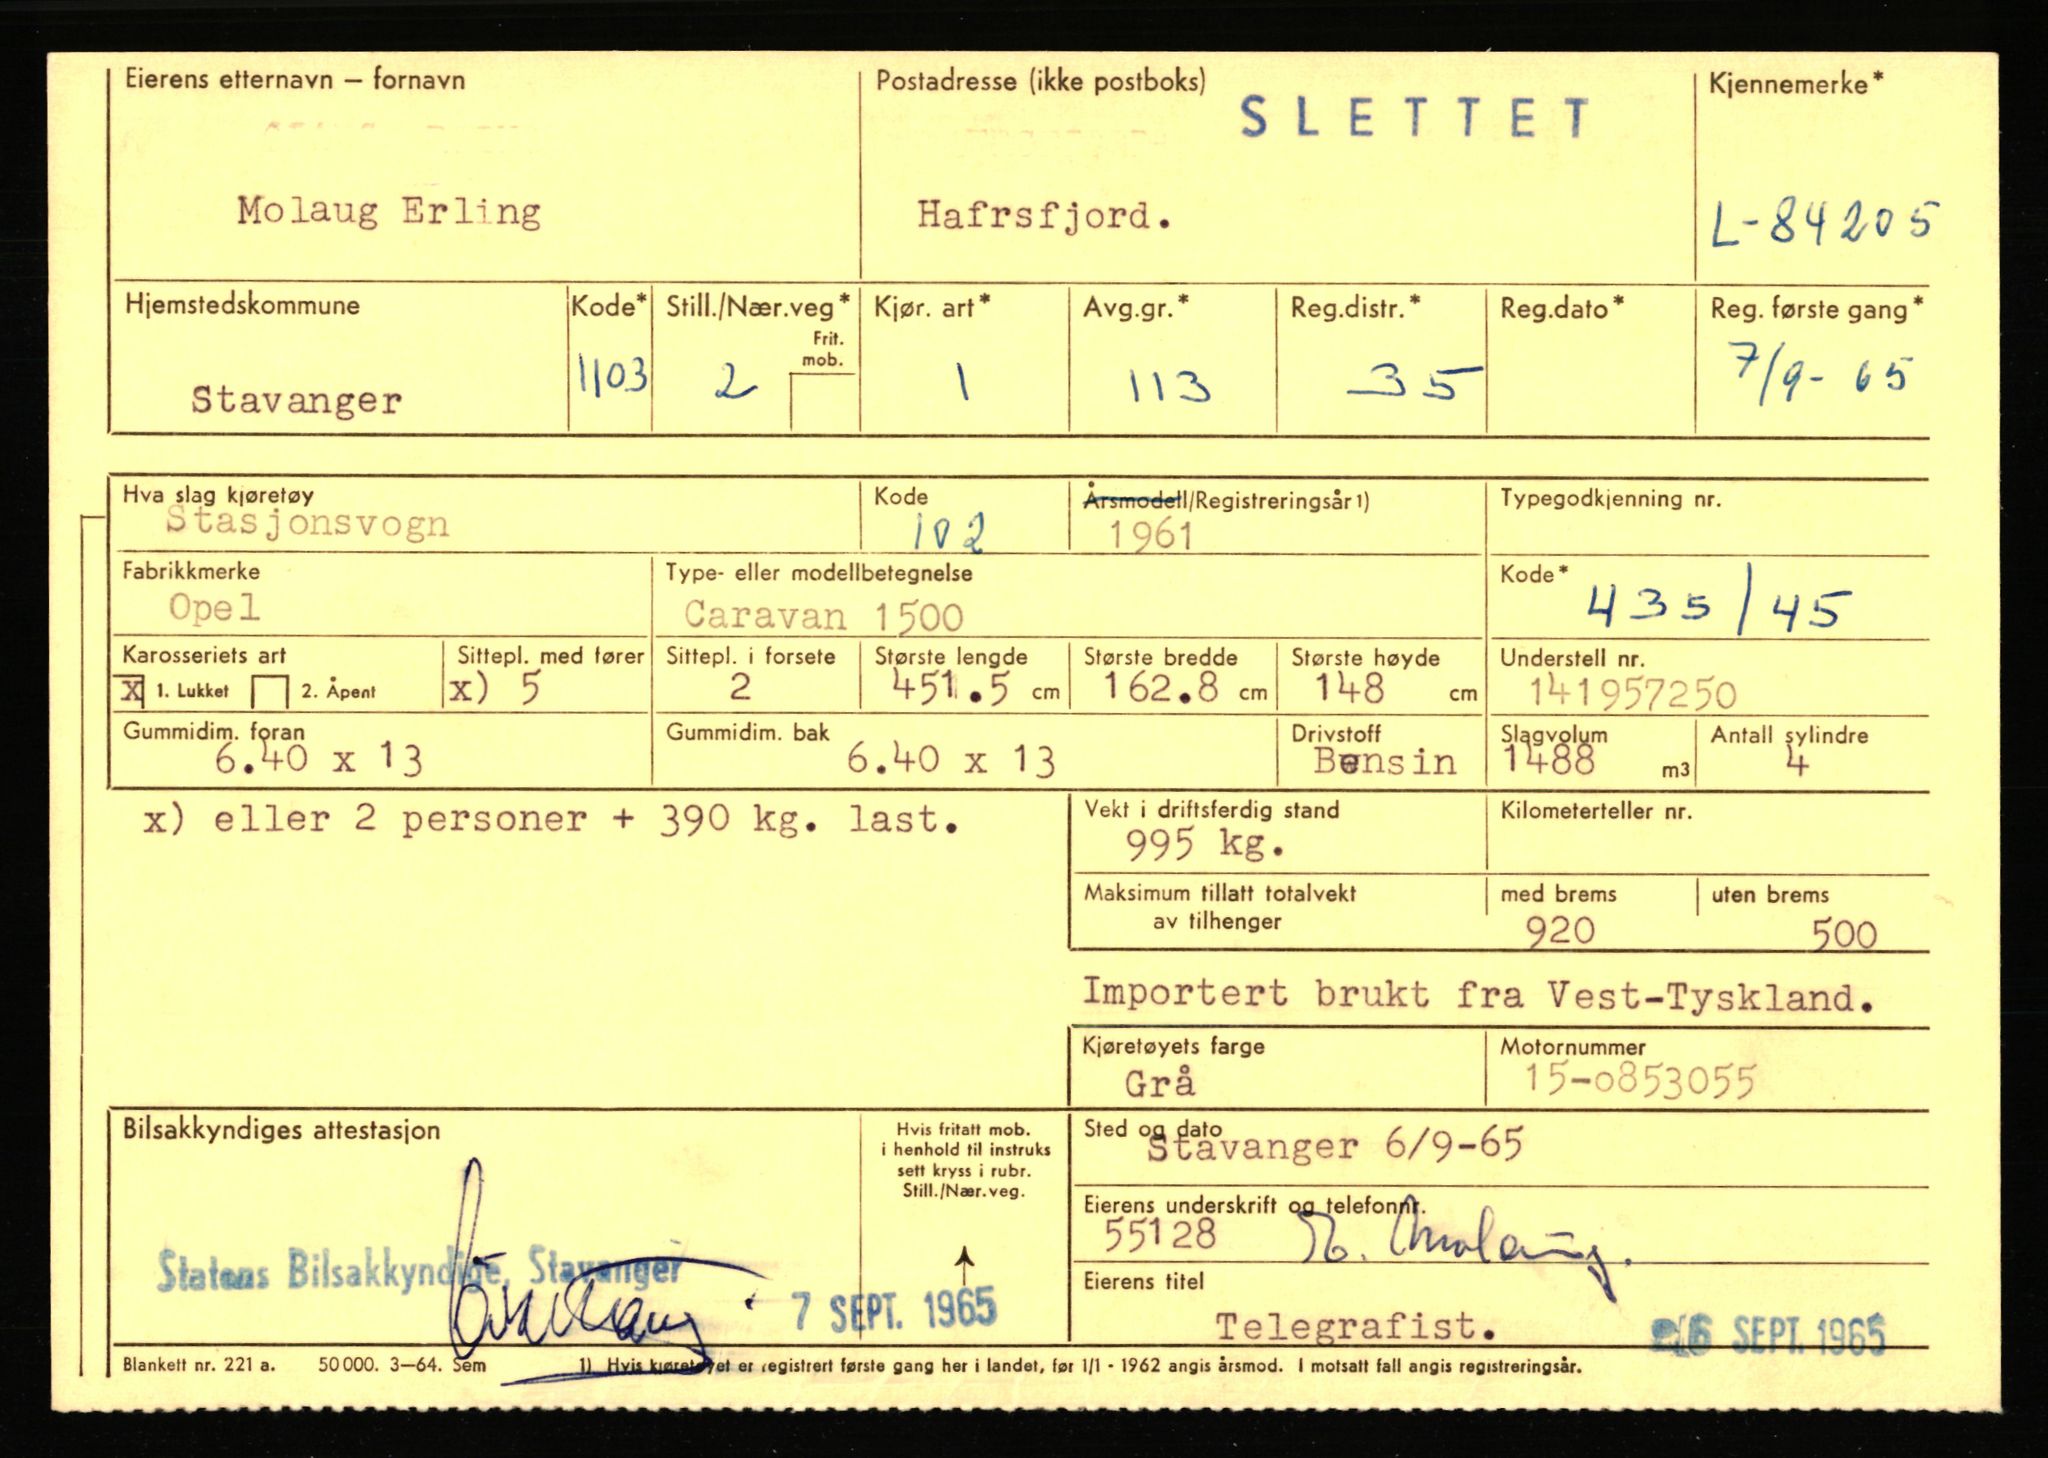 Eierens etternavn – fornavn
Postadresse (ikke postboks)
SLETTET
Kjennemerke*
Molaug Erling
Hafrsfjord.
L-84205
Hjemstedskommune
Kode*
Still./Nær.veg*
Frit.
mob.
Kjør. art*
Avg.gr.*
Reg.distr.*
Reg.dato*
Reg. første gang*
Stavanger
1103
2
1
113
35
7/9-65
Hva slag kjøretøy
Stasjonsvogn
Kode
102
Årsmodell/Registreringsår 1)
1961
Typegodkjenning nr.
Fabrikkmerke
Opel
Type- eller modellbetegnelse
Caravan 1500
Kode*
435/45
Karosseriets art
X 1. Lukket 2. Åpent
Sittepl. med fører
x) 5
Sittepl. i forsete
2
Største lengde
451.5 cm
Største bredde
162.8 cm
Største høyde
148 cm
Understell nr.
141957250
Gummidim. foran
6.40 x 13
Gummidim. bak
6.40 x 13
Drivstoff
Bensin
Slagvolum
1488 m3
Antall sylindre
4
x) eller 2 personer + 390 kg. last.
Vekt i driftsferdig stand
995 kg.
Kilometerteller nr.
Maksimum tillatt totalvekt
av tilhenger
med brems
920
uten brems
500
Importert brukt fra Vest-Tyskland.
Kjøretøyets farge
Grå
Motornummer
15-0853055
Bilsakkyndiges attestasjon
Hvis fritatt mob.
i henhold til instruks
sett kryss i rubr.
Still./Nær.veg.
Sted og dato
Stavanger 6/9-65
Eierens underskrift og telefonnr.
55128 E. Molaug.
Statens Bilsakkyndige, Stavanger
7 SEPT. 1965
Eierens titel
Telegrafist.
6 SEPT. 1965
Blankett nr. 221 a. 50 000. 3–64. Sem
1) Hvis kjøretøyet er registrert første gang her i landet, før 1/1 - 1962 angis årsmod. I motsatt fall angis registreringsår.